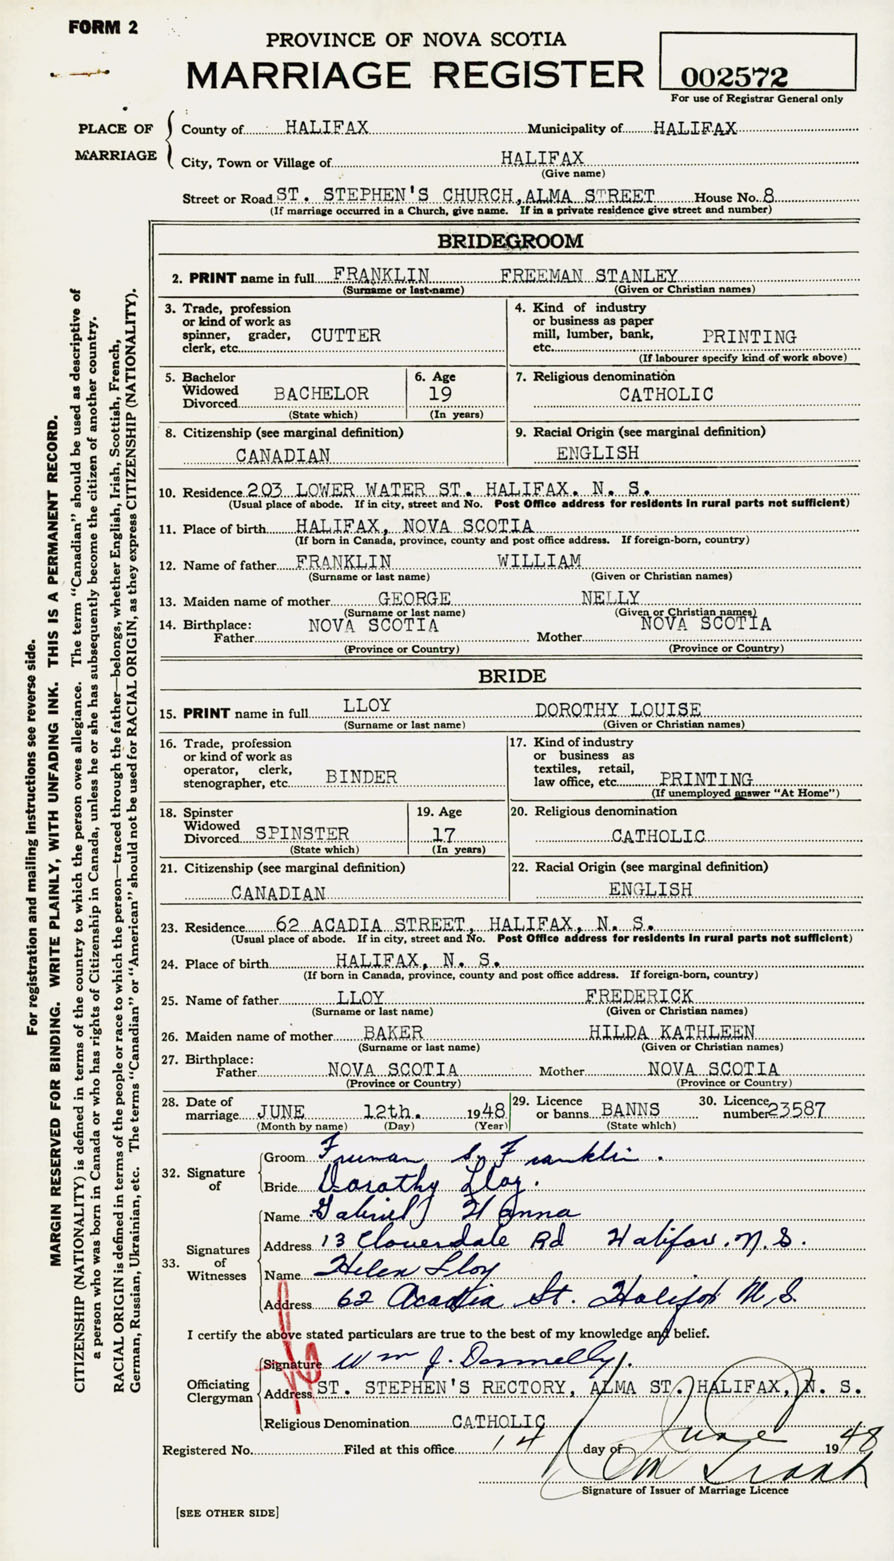 FORM 2
PROVINCE OF NOVA SCOTIA
MARRIAGE REGISTER
002572
For use of Registrar General only
PLACE OF MARRIAGE
County of HALIFAX Municipality of HALIFAX
City, Town or Village of HALIFAX
(Give name)
Street or Road ST. STEPHEN'S CHURCH, ALMA STREET House No. 8
(If marriage occurred in a Church, give name. If in a private residence give street and number)
BRIDEGROOM
2. PRINT name in full FRANKLIN FREEMAN STANLEY
(Surname or last name) (Given or Christian names)
3. Trade, profession or kind of work as spinner, grader, clerk, etc. CUTTER
4. Kind of industry or business as paper mill, lumber, bank, etc. PRINTING
(If labourer specify kind of work above)
5. Bachelor Widowed Divorced BACHELOR
(State which)
6. Age 19
(In years)
7. Religious denomination
CATHOLIC
8. Citizenship (see marginal definition)
CANADIAN
9. Racial Origin (see marginal definition)
ENGLISH
10. Residence 203 LOWER WATER ST. HALIFAX. N. S.
(Usual place of abode. If in city, street and No. Post Office address for residents in rural parts not sufficient)
11. Place of birth HALIFAX, NOVA SCOTIA
(If born in Canada, province, county and post office address. If foreign-born, country)
12. Name of father FRANKLIN WILLIAM
(Surname or last name) (Given or Christian names)
13. Maiden name of mother GEORGE NELLY
(Surname or last name) (Given or Christian names)
14. Birthplace: Father NOVA SCOTIA Mother NOVA SCOTIA
(Province or Country) (Province or Country)
BRIDE
15. PRINT name in full LLOY DOROTHY LOUISE
(Surname or last name) (Given or Christian names)
16. Trade, profession or kind of work as operator, clerk, stenographer, etc. BINDER
17. Kind of industry or business as textiles, retail, law office, etc. PRINTING
(If unemployed answer "At Home")
18. Spinster Widowed Divorced SPINSTER
(State which)
19. Age 17
(In years)
20. Religious denomination
CATHOLIC
21. Citizenship (see marginal definition)
CANADIAN
22. Racial Origin (see marginal definition)
ENGLISH
23. Residence 62 ACADIA STREET, HALIFAX, N. S.
(Usual place of abode. If in city, street and No. Post Office address for residents in rural parts not sufficient)
24. Place of birth HALIFAX, N. S.
(If born in Canada, province, county and post office address. If foreign-born, country)
25. Name of father LLOY FREDERICK
(Surname or last name) (Given or Christian names)
26. Maiden name of mother BAKER HILDA KATHLEEN
(Surname or last name) (Given or Christian names)
27. Birthplace: Father NOVA SCOTIA Mother NOVA SCOTIA
(Province or Country) (Province or Country)
28. Date of marriage JUNE 12th. 1948
(Month by name) (Day) (Year)
29. Licence or banns BANNS
(State which)
30. Licence number 23587
32. Signature of
Groom Freeman S. Franklin.
Bride Dorothy Lloy.
33. Signatures of Witnesses
Name Gabriel Hanna
Address 13 Cloverdale Rd Halifax. N.S.
Name Helen Lloy
Address 62 Acadia St. Halifax N.S.
I certify the above stated particulars are true to the best of my knowledge and belief.
Officiating Clergyman
Signature Wm J. Donnelly.
Address ST. STEPHEN'S RECTORY, ALMA ST. HALIFAX, N. S.
Religious Denomination CATHOLIC
Registered No. Filed at this office 14 day of June 1948
Signature of Issuer of Marriage Licence
[SEE OTHER SIDE]
For registration and mailing instructions see reverse side.
MARGIN RESERVED FOR BINDING. WRITE PLAINLY, WITH UNFADING INK. THIS IS A PERMANENT RECORD.
CITIZENSHIP (NATIONALITY) is defined in terms of the country to which the person owes allegiance. The term "Canadian" should be used as descriptive of
a person who was born in Canada or who has rights of Citizenship in Canada, unless he or she has subsequently become the citizen of another country.
RACIAL ORIGIN is defined in terms of the people or race to which the person—traced through the father—belongs, whether English, Irish, Scottish, French,
German, Russian, Ukrainian, etc. The terms "Canadian" or "American" should not be used for RACIAL ORIGIN, as they express CITIZENSHIP (NATIONALITY).